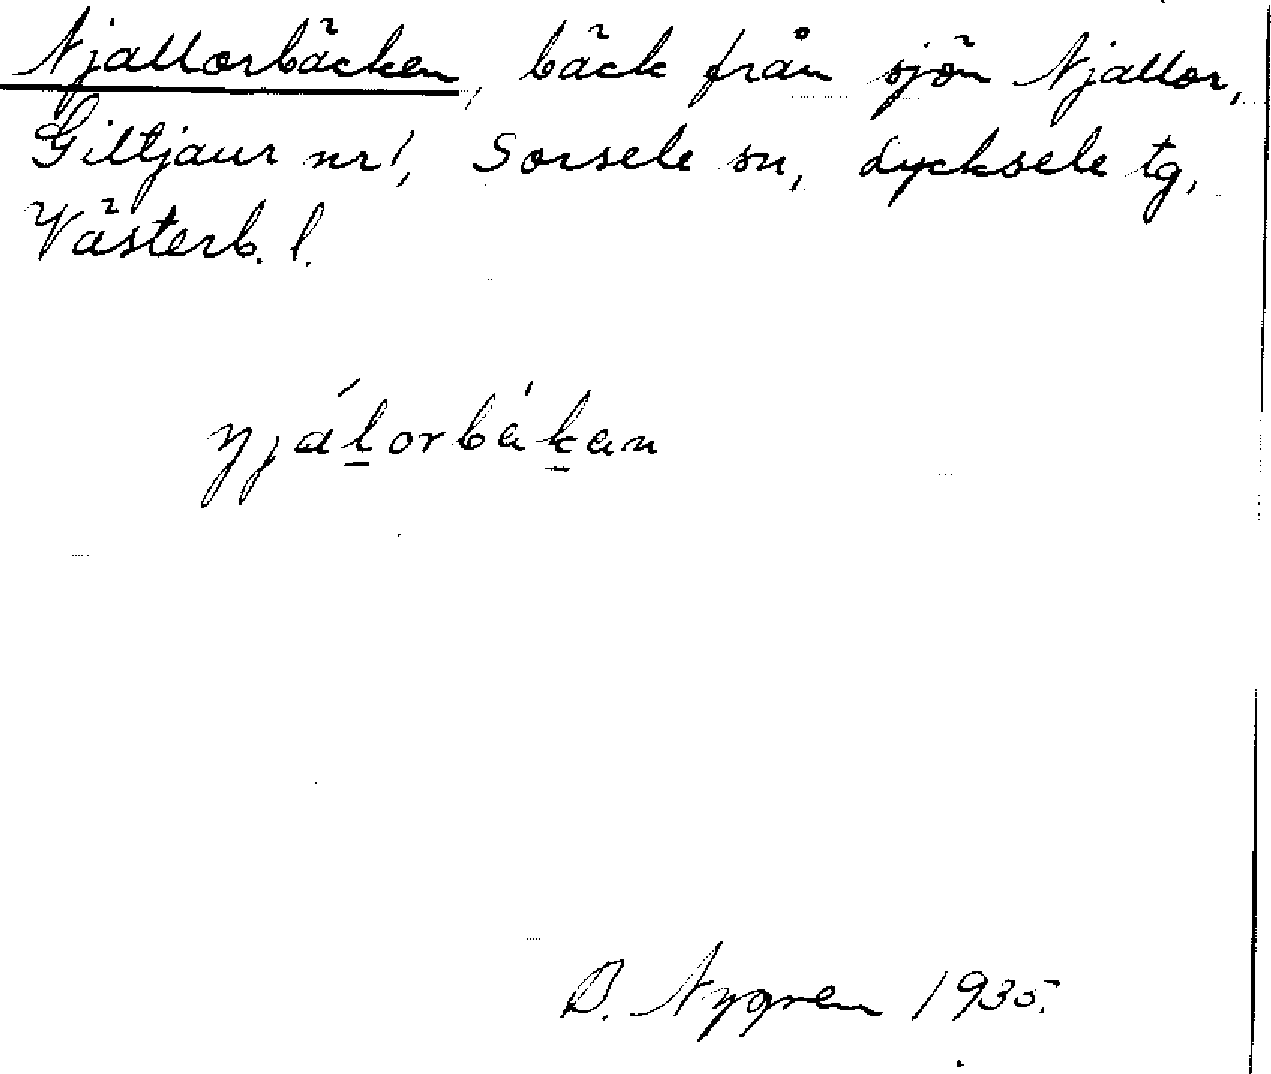 Njallorbäcken, bäck från sjön Njallor,
Giltjaur nr 1, Sorsele sn, Lycksele tg,
Västerb. l.
njál̠orbák̠an
B. Nygren 1935.